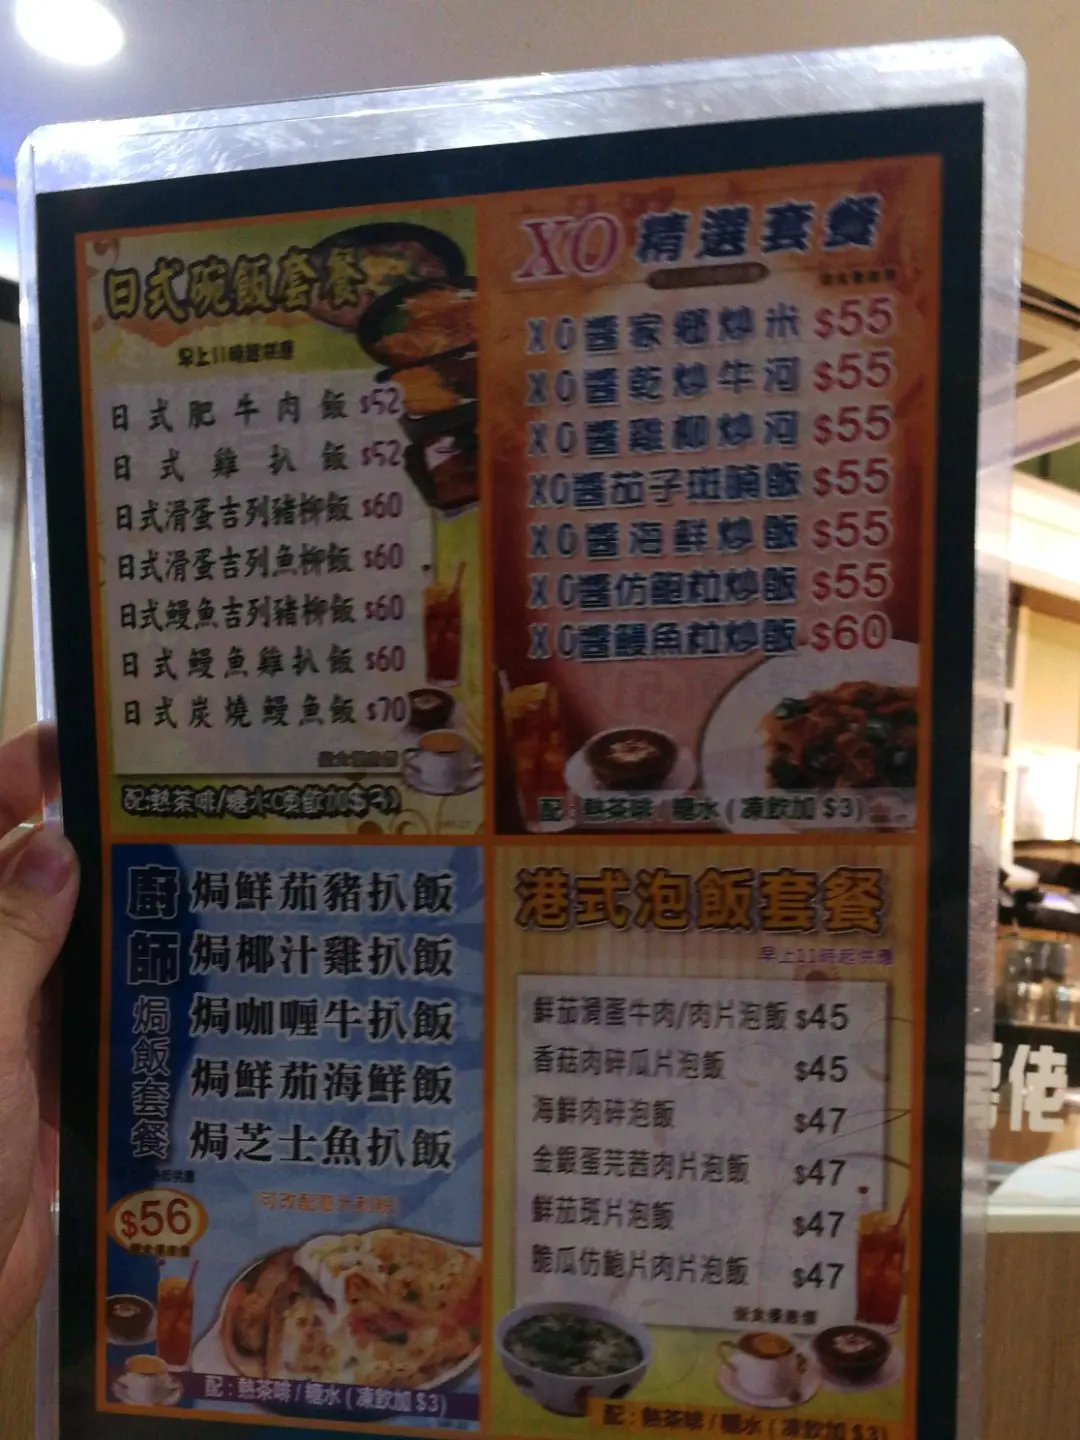 日式碗飯套餐
早上11時起供應
日式肥牛肉飯 $52
日式雞扒飯 $52
日式滑蛋吉列豬柳飯 $60
日式滑蛋吉列魚柳飯 $60
日式鰻魚吉列豬柳飯 $60
日式鰻魚雞扒飯 $60
日式炭燒鰻魚飯 $70
配:熱茶啡/糖水(凍飲加$3)
XO精選套餐
XO醬家鄉炒米 $55
XO醬乾炒牛河 $55
XO醬雞柳炒河 $55
XO醬茄子斑腩飯 $55
XO醬海鮮炒飯 $55
XO醬仿鮑粒炒飯 $55
XO醬鰻魚粒炒飯 $60
配:熱茶啡/糖水(凍飲加$3)
廚師焗飯套餐
焗鮮茄豬扒飯
焗椰汁雞扒飯
焗咖喱牛扒飯
焗鮮茄海鮮飯
焗芝士魚扒飯
時起供應
(可改配意大利粉)
$56
配:熱茶啡/糖水(凍飲加$3)
港式泡飯套餐
早上11時起供應
鮮茄滑蛋牛肉/肉片泡飯 $45
香菇肉碎瓜片泡飯 $45
海鮮肉碎泡飯 $47
金銀蛋芫茜肉片泡飯 $47
鮮茄斑片泡飯 $47
脆瓜仿鮑片肉片泡飯 $47
堂食優惠價
配:熱茶啡/糖水(凍飲加$3)
佬